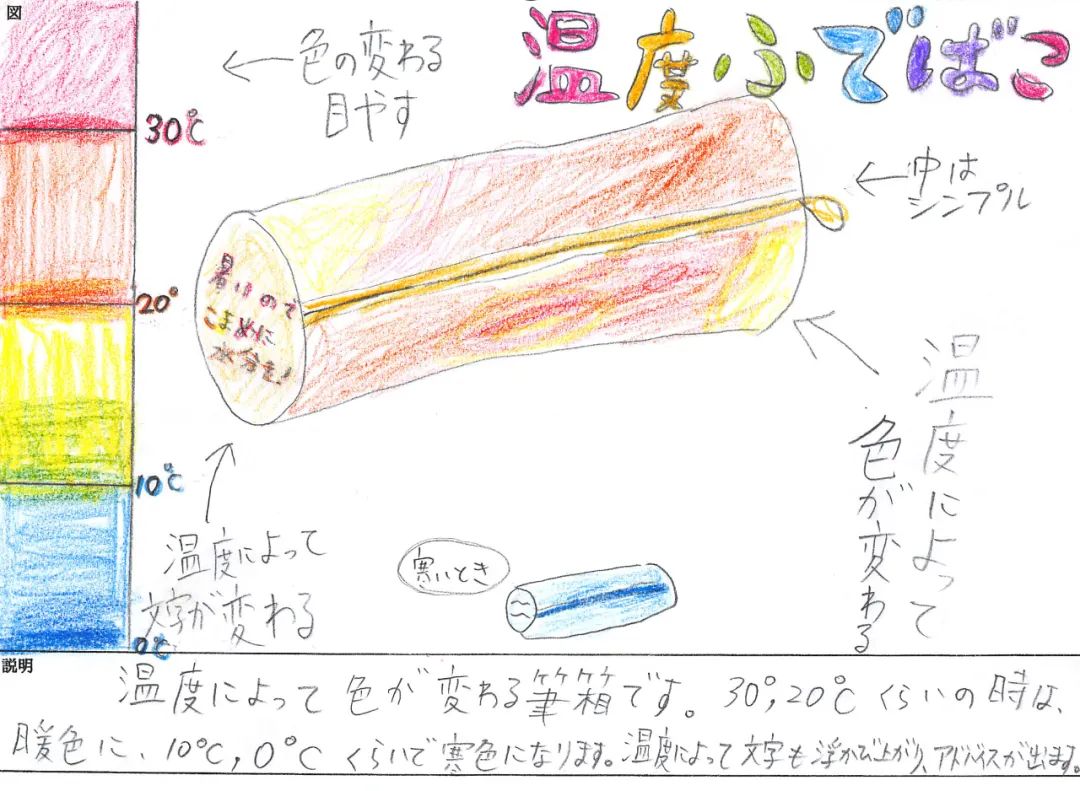 図
温度ふでばこ
←色の変わる
目やす
30℃
←中は
シンプル
20°
暑いので
こまめに
水分を!
温度によって
色が変わる
10℃
温度によって
文字が変わる
寒いとき
0℃
説明
温度によって色が変わる筆箱です。30°,20℃くらいの時は、
暖色に、10℃,0℃くらいで寒色になります。温度によって文字も浮かび上がり、アドバイスが出ます。